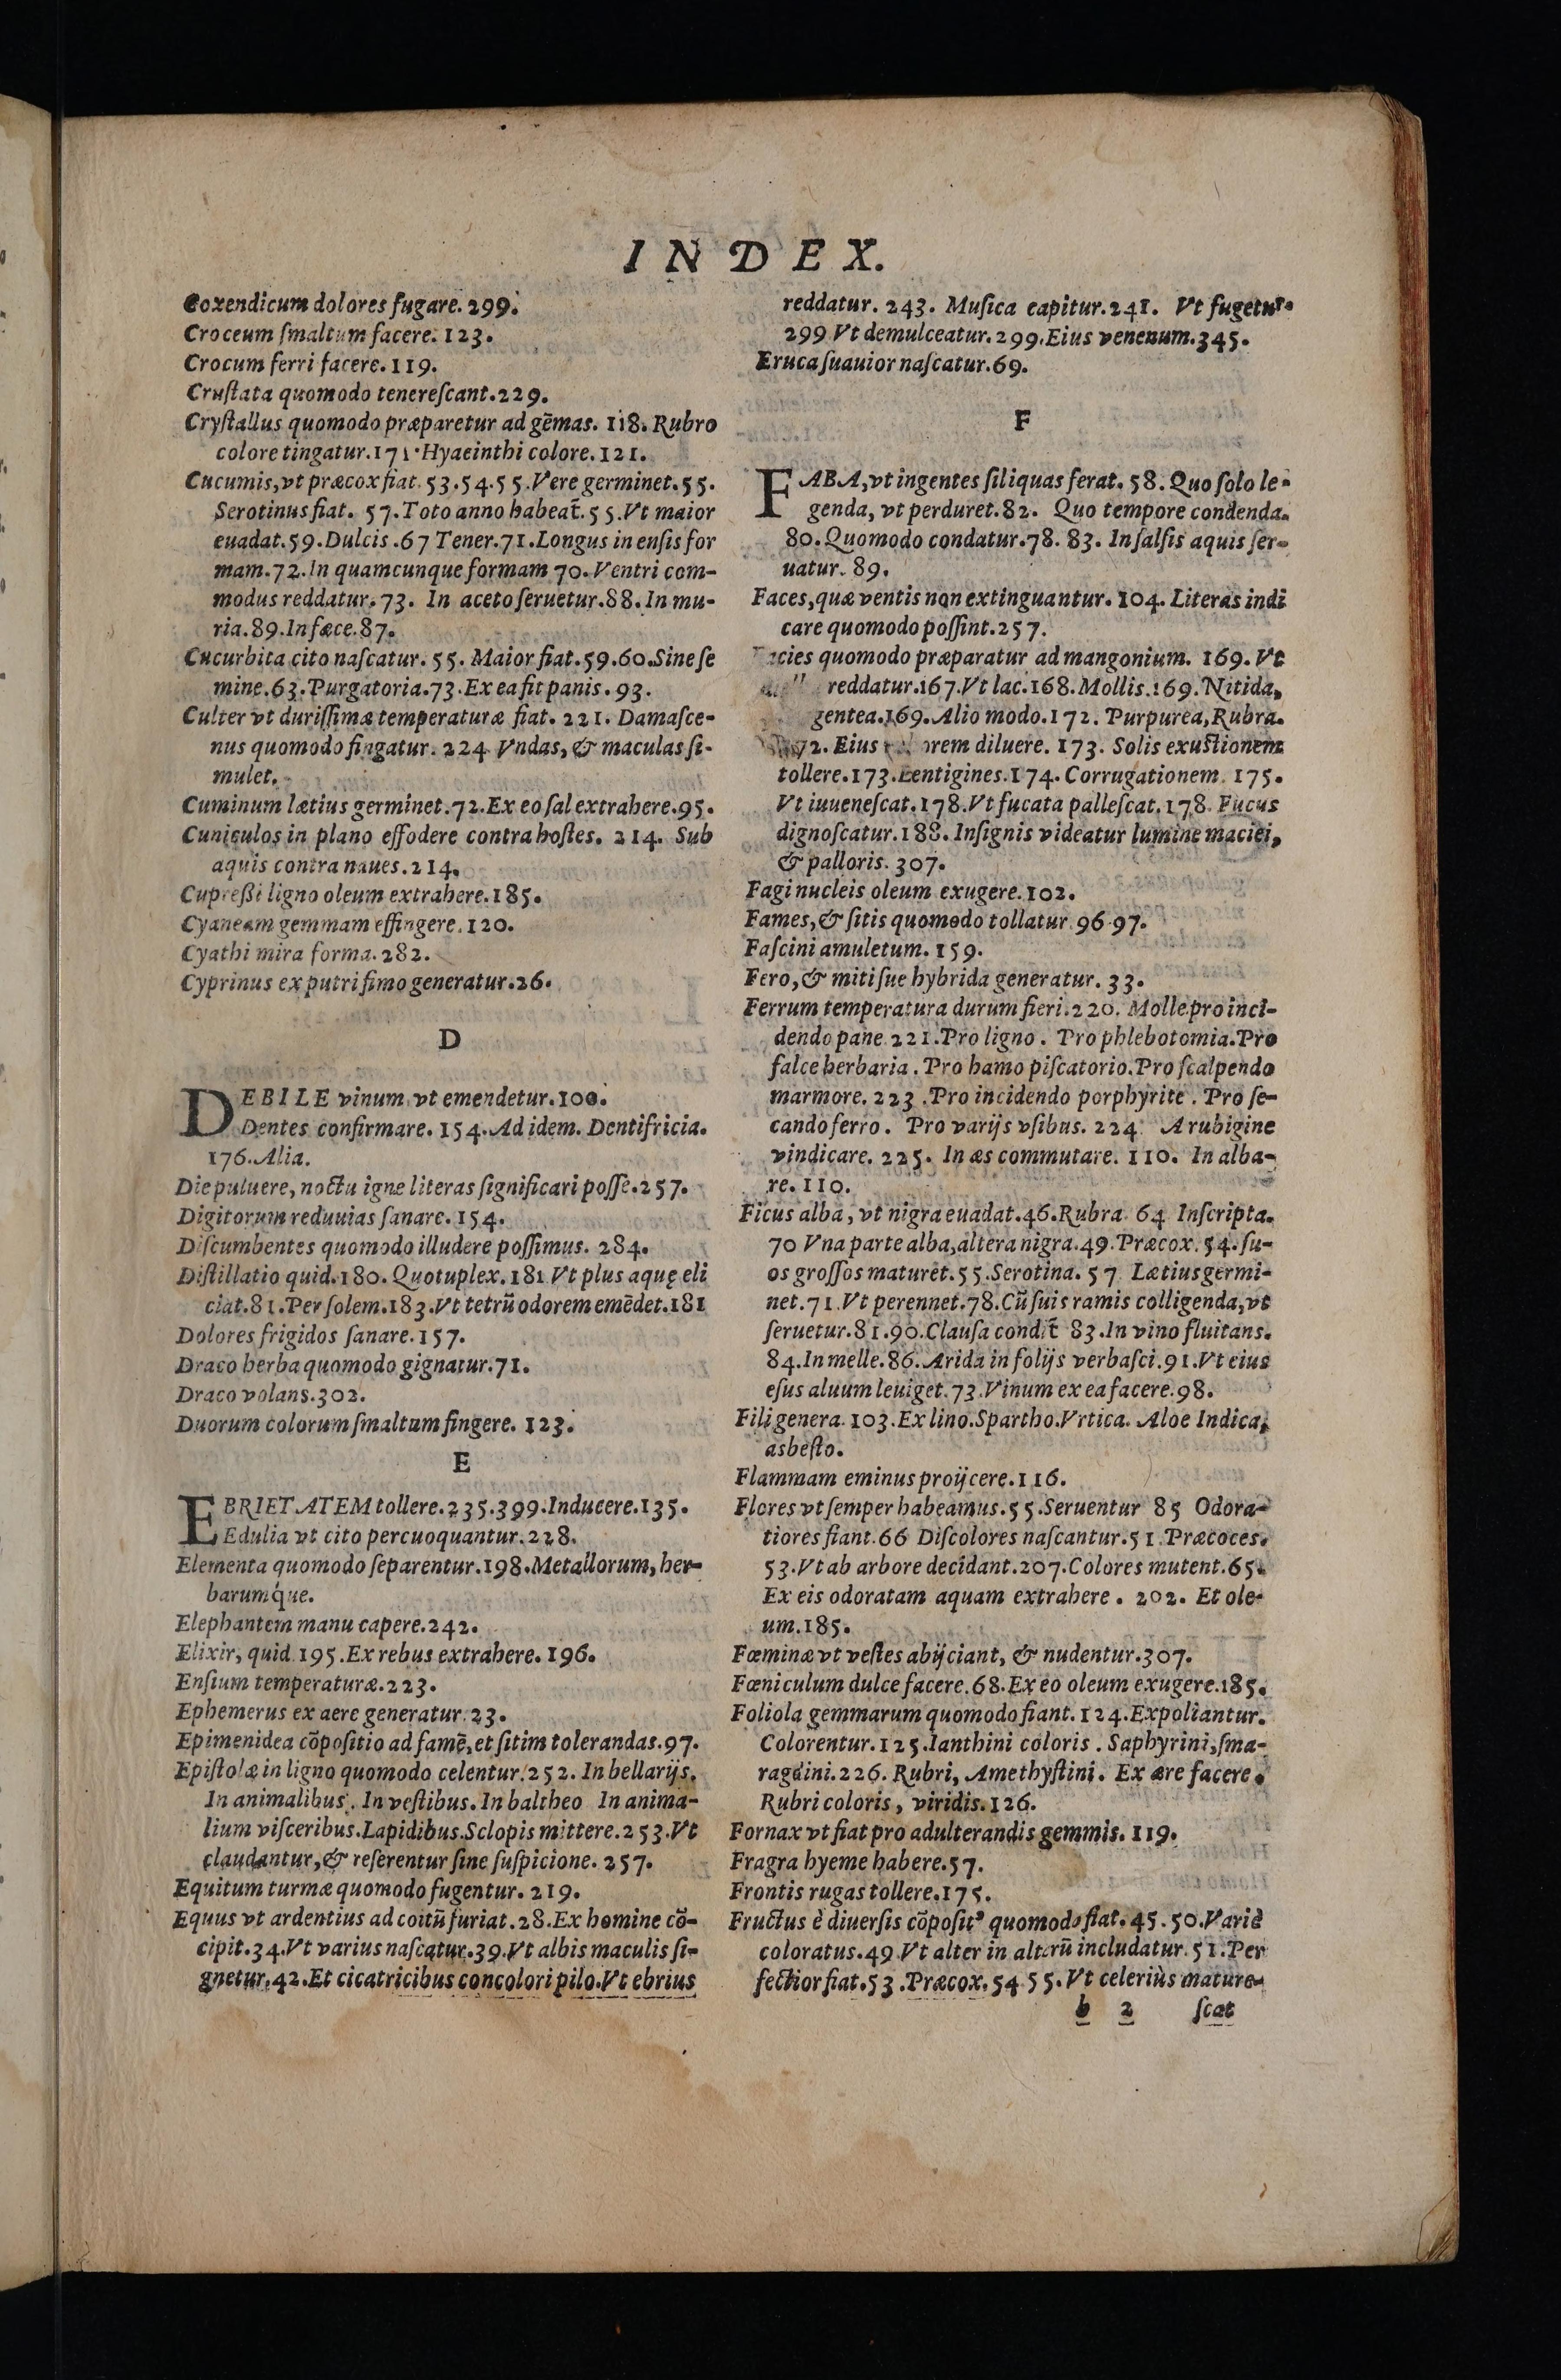 INDEX.
Coxendicum dolores fugare. 299.
Croceum ſmaltum facere. 123.
Crocum ferri facere. 119.
Cruſtata quomodo tenereſcant. 229.
Cryſtallus quomodo præparetur ad gẽmas. 118. Rubro
colore tingatur. 171. Hyacinthi colore. 121.
Cucumis, vt præcox fiat. 53. 54. 55. Vere germinet. 55.
Serotinus fiat. 57. Toto anno habeat̃. 55. Vt maior
euadat. 59. Dulcis. 67 Tener. 71. Longus in enſis for
mam. 72. In quamcunque formam 70. Ventri com-
modus reddatur. 73. In aceto ſeruetur. 88. In mu-
ria. 89. In fæce. 87.
Cucurbita cito naſcatur. 55. Maior fiat. 59. 60. Sine ſe
mine. 63. Purgatoria. 73. Ex ea fit panis. 93.
Culter vt duriſſimæ temperaturæ fiat. 221. Damaſce-
nus quomodo fingatur. 224. Vndas, & maculas ſi-
mulet.
Cuminum lætius germinet. 72. Ex eo ſal extrahere. 95.
Cuniculos in plano effodere contra hoſtes. 214. Sub
aquis contra naues. 214.
Cupreſſi ligno oleum extrahere. 185.
Cyaneam gemmam effingere. 120.
Cyathi mira forma. 282.
Cyprinus ex putri fimo generatur. 26.
D
DEBILE vinum vt emendetur. 100.
Dentes confirmare. 154. Ad idem. Dentifricia.
176. Alia.
Die puluere, noctu igne literas ſignificari poſſe. 257.
Digitorum reduuias ſanare. 154.
Diſcumbentes quomodo illudere poſſimus. 284.
Diſtillatio quid. 180. Quotuplex. 181. Vt plus aquę eli
ciat. 81. Per ſolem. 183. Vt tetrũ odorem emẽdet. 181
Dolores frigidos ſanare. 157.
Draco herba quomodo gignatur. 71.
Draco volans. 302.
Duorum colorum ſmaltum fingere. 123.
E
EBRIETATEM tollere. 235. 399. Inducere. 135.
Edulia vt cito percuoquantur. 228.
Elementa quomodo ſeparentur. 198. Metallorum, her-
barumq́ue.
Elephantem manu capere. 242.
Elixir, quid. 195. Ex rebus extrahere. 196.
Enſium temperaturæ. 223.
Ephemerus ex aere generatur. 23.
Epimenidea cõpoſitio ad famẽ, et ſitim tolerandas. 97.
Epiſtolæ in ligno quomodo celentur. 252. In bellarijs.
In animalibus. In veſtibus. In baltheo In anima-
lium viſceribus. Lapidibus. Sclopis mittere. 253. Vt
claudantur, & reſerentur ſine ſuſpicione. 257.
Equitum turmæ quomodo fugentur. 219.
Equus vt ardentius ad coitũ furiat. 28. Ex homine cõ-
cipit. 34. Vt varius naſcatur. 39. Vt albis maculis ſi-
gnetur. 42. Et cicatricibus concolori pilo. Vt ebrius
reddatur. 243. Muſica capitur. 241. Vt fugetur.
299 Vt demulceatur. 299. Eius venenum. 345.
Eruca ſuauior naſcatur. 69.
F
FABA, vt ingentes ſiliquas ferat. 58. Quo ſolo le-
genda, vt perduret. 82. Quo tempore condenda.
80. Quomodo condatur. 78. 83. In ſalſis aquis ſer-
uatur. 89.
Faces, quæ ventis non extinguantur. 104. Literas indi
care quomodo poſſint. 257.
Facies quomodo præparatur ad mangonium. 169. Vt
reddatur. 167. Vt lac. 168. Mollis. 169. Nitida,
gentea. 169. Alio modo. 172. Purpurea, Rubra.
Eius diluere. 173. Solis exuſtionem
tollere. 173. Lentigines. 174. Corrugationem. 175.
Vt iuueneſcat. 178. Vt fucata palleſcat. 178. Fucus
dignoſcatur. 188. Inſignis videatur lumine maciei,
& palloris. 307.
Fagi nucleis oleum exugere. 102.
Fames, & ſitis quomodo tollatur. 96. 97.
Faſcini amuletum. 159.
Fero, & miti ſue hybrida generatur. 33.
Ferrum temperatura durum fieri. 220. Molle pro inci-
dendo pane. 221. Pro ligno. Pro phlebotomia. Pro
falce herbaria. Pro hamo piſcatorio. Pro ſcalpendo
marmore. 223. Pro incidendo porphyrite. Pro ſe-
cando ferro. Pro varijs vſibus. 224. A rubigine
vindicare. 225. In æs commutare. 110. In alba-
re. 110.
Ficus alba, vt nigra euadat. 46. Rubra. 64. Inſcripta.
70 Vna parte alba, altera nigra. 49. Præcox. 54. ſu-
os groſſos maturet. 55. Serotina. 57. Lætius germi-
net. 71. Vt perennet. 78. Cũ ſuis ramis colligenda, vt
ſeruetur. 81. 90. Clauſa condit̃ 83. In vino fluitans.
84. In melle. 86. Arida in folijs verbaſci. 91. Vt eius
eſus aluum leuiget. 73. Vinum ex ea facere. 98.
Fili genera. 103. Ex lino. Spartho. Vrtica. Aloe Indica,
asbeſto.
Flammam eminus proijcere. 116.
Flores vt ſemper habeamus. 55. Seruentur 85 Odora-
tiores fiant. 66 Diſcolores naſcantur. 51. Præcoces.
53. Vt ab arbore decidant. 207. Colores mutent. 65.
Ex eis odoratam aquam extrahere. 202. Et ole-
um. 185.
Fœminæ vt veſtes abijciant, & nudentur. 307.
Fœniculum dulce facere. 68. Ex eo oleum exugere. 185.
Foliola gemmarum quomodo fiant. 124. Expoliantur.
Colorentur. 125. Ianthini coloris. Saphyrini, ſma-
ragdini. 226. Rubri, Amethyſtini. Ex ære facere
Rubri coloris, viridis. 126.
Fornax vt fiat pro adulterandis gemmis. 119.
Fragra hyeme habere. 57.
Frontis rugas tollere. 175.
Fructus è diuerſis cõpoſitꝰ quomodo fiat. 45. 50. Variè
coloratus. 49. Vt alter in alterũ includatur. 51. Per
fectior fiat. 53. Præcox. 54. 55. Vt celeriùs mature-
b 2 ſcat